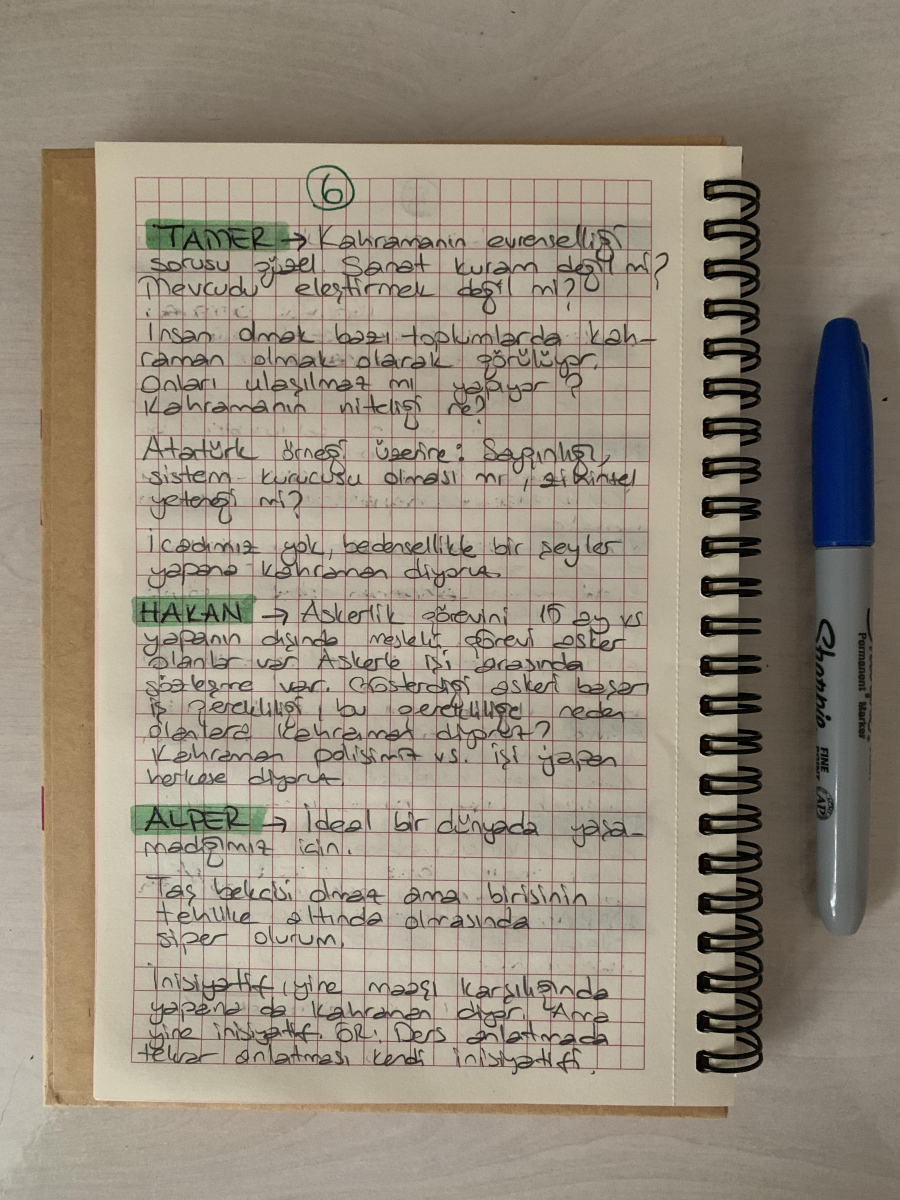 6
TAMER → Kahramanın evrenselliği
sorusu güzel. Sanat kuram değil mi?
Mevcudu eleştirmek değil mi?
İnsan olmak bazı toplumlarda kah-
raman olmak olarak görülüyor.
Onları ulaşılmaz mı yapıyor?
Kahramanın niteliği ne?
Atatürk örneği üzerine: Saygınlığı,
sistem kurucusu olması mı, zihinsel
yeteneği mi?
İcadımız yok, bedensellikle bir şeyler
yapana kahraman diyoruz.
HAKAN → Askerlik görevini 15 ay vs
yapanın dışında mesleki görevi asker
olanlar var. Askerle işi arasında
sözleşme var. Gösterdiği askeri başarı
iş gerekliliği, bu gerekliliğe neden
ölenlere kahraman diyoruz?
Kahraman polisimiz vs. işi yapan
herkese diyoruz.
ALPER → İdeal bir dünyada yaşa-
madığımız için.
Taş bekçisi olmaz ama birisinin
tehlike altında olmasında
siper olurum.
İnisiyatif, yine maaşı karşılığında
yapana da kahraman diyor. Ama
yine inisiyatif. ÖR. Ders anlatmada
tekrar anlatması kendi inisiyatifi.
Sharpie
FINE
Permanent Marker